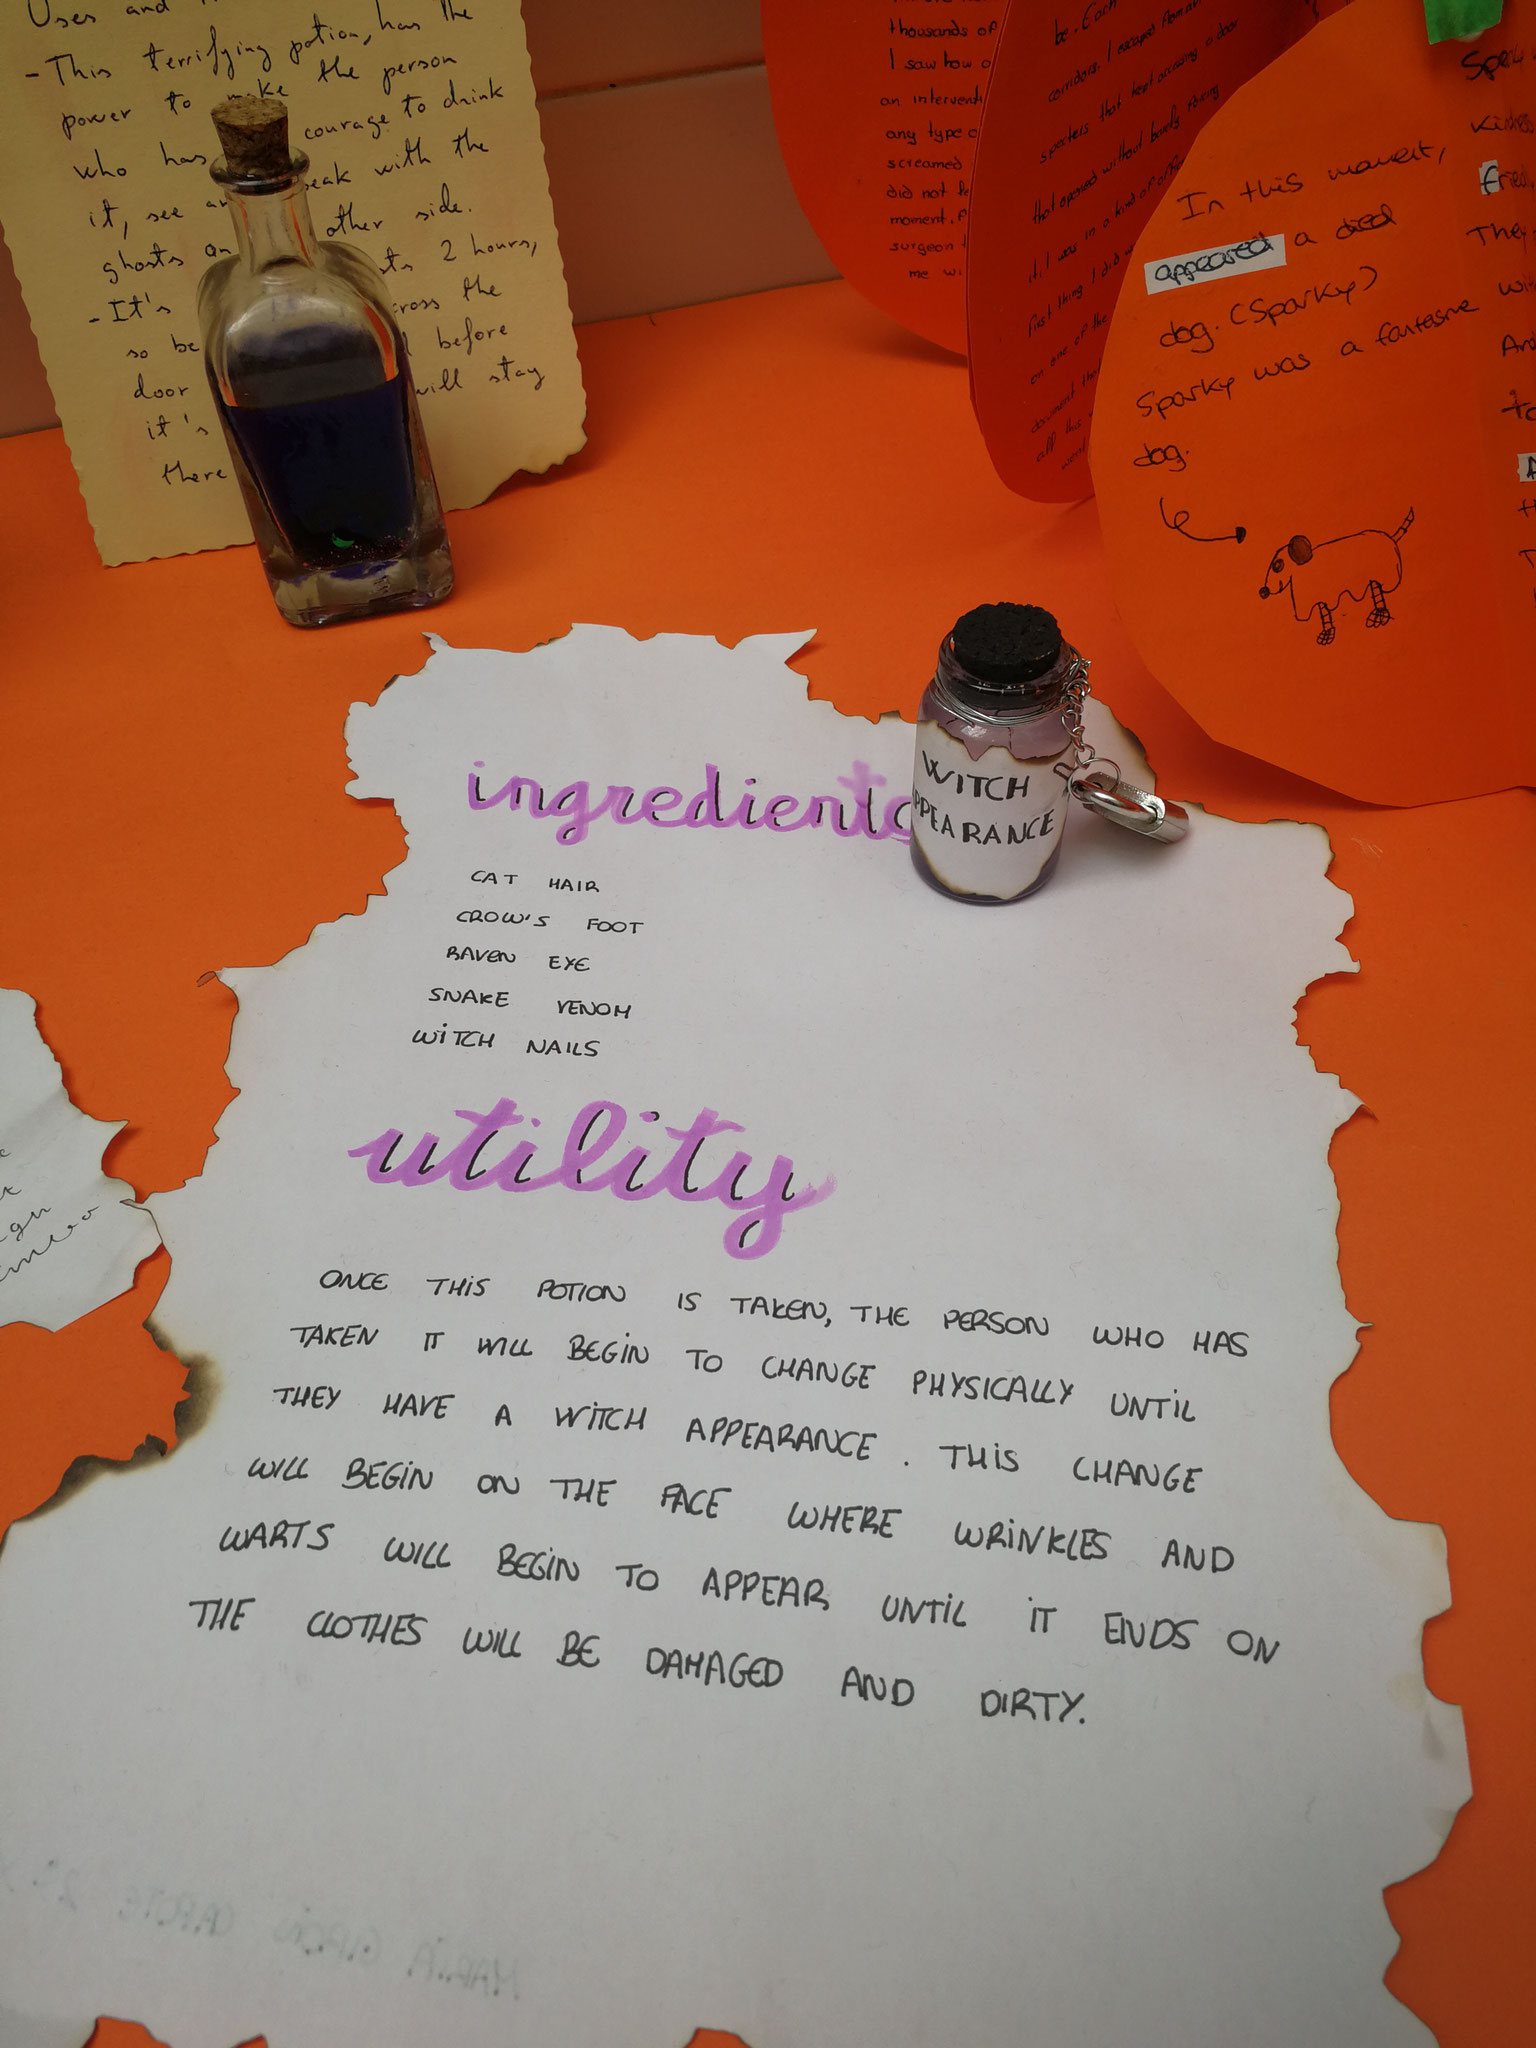 Uses and
- This terrifying potion, has the
power to make the person
who has courage to drink
it, see an speak with the
ghosts an other side.
- It's 2 hours,
so be cross the
door before
it's will stay
there
thousands of
I saw how
an interventi
any type
screamed
did not
moment.
surgeon
me wi
be. Each
corridors, I escaped from
specters that kept accessing a door
that opened without barely forcing
it. I was in a kind of offi
first thing I did w
on one of the
document tha
all this
went
In this moment,
appeared a died
dog. (Sparky)
Sparky was a fantasme
dog.
kindn
frien
The
And
to
WITCH
PPEARANCE
ingredients
CAT HAIR
CROW'S FOOT
RAVEN EYE
SNAKE VENOM
WITCH NAILS
utility
ONCE THIS POTION IS TAKEN, THE PERSON WHO HAS
TAKEN IT WILL BEGIN TO CHANGE PHYSICALLY UNTIL
THEY HAVE A WITCH APPEARANCE. THIS CHANGE
WILL BEGIN ON THE FACE WHERE WRINKLES AND
WARTS WILL BEGIN TO APPEAR UNTIL IT ENDS ON
THE CLOTHES WILL BE DAMAGED AND DIRTY.